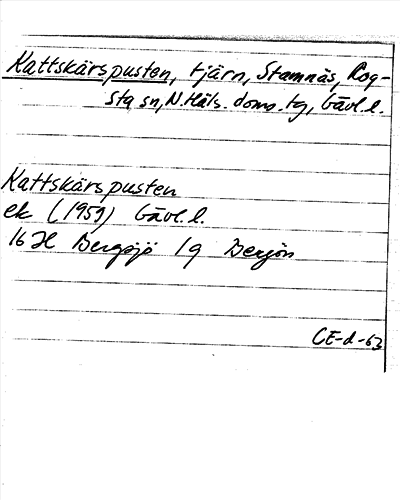 Kattskärspusten, tjärn, Stamnäs, Rog-
sta sn, N. Häls. doms. tg, Gävl. l.
Kattskärspusten
ek (1959) Gävl. l.
16 H Bergsjö 1g
CE-d-63